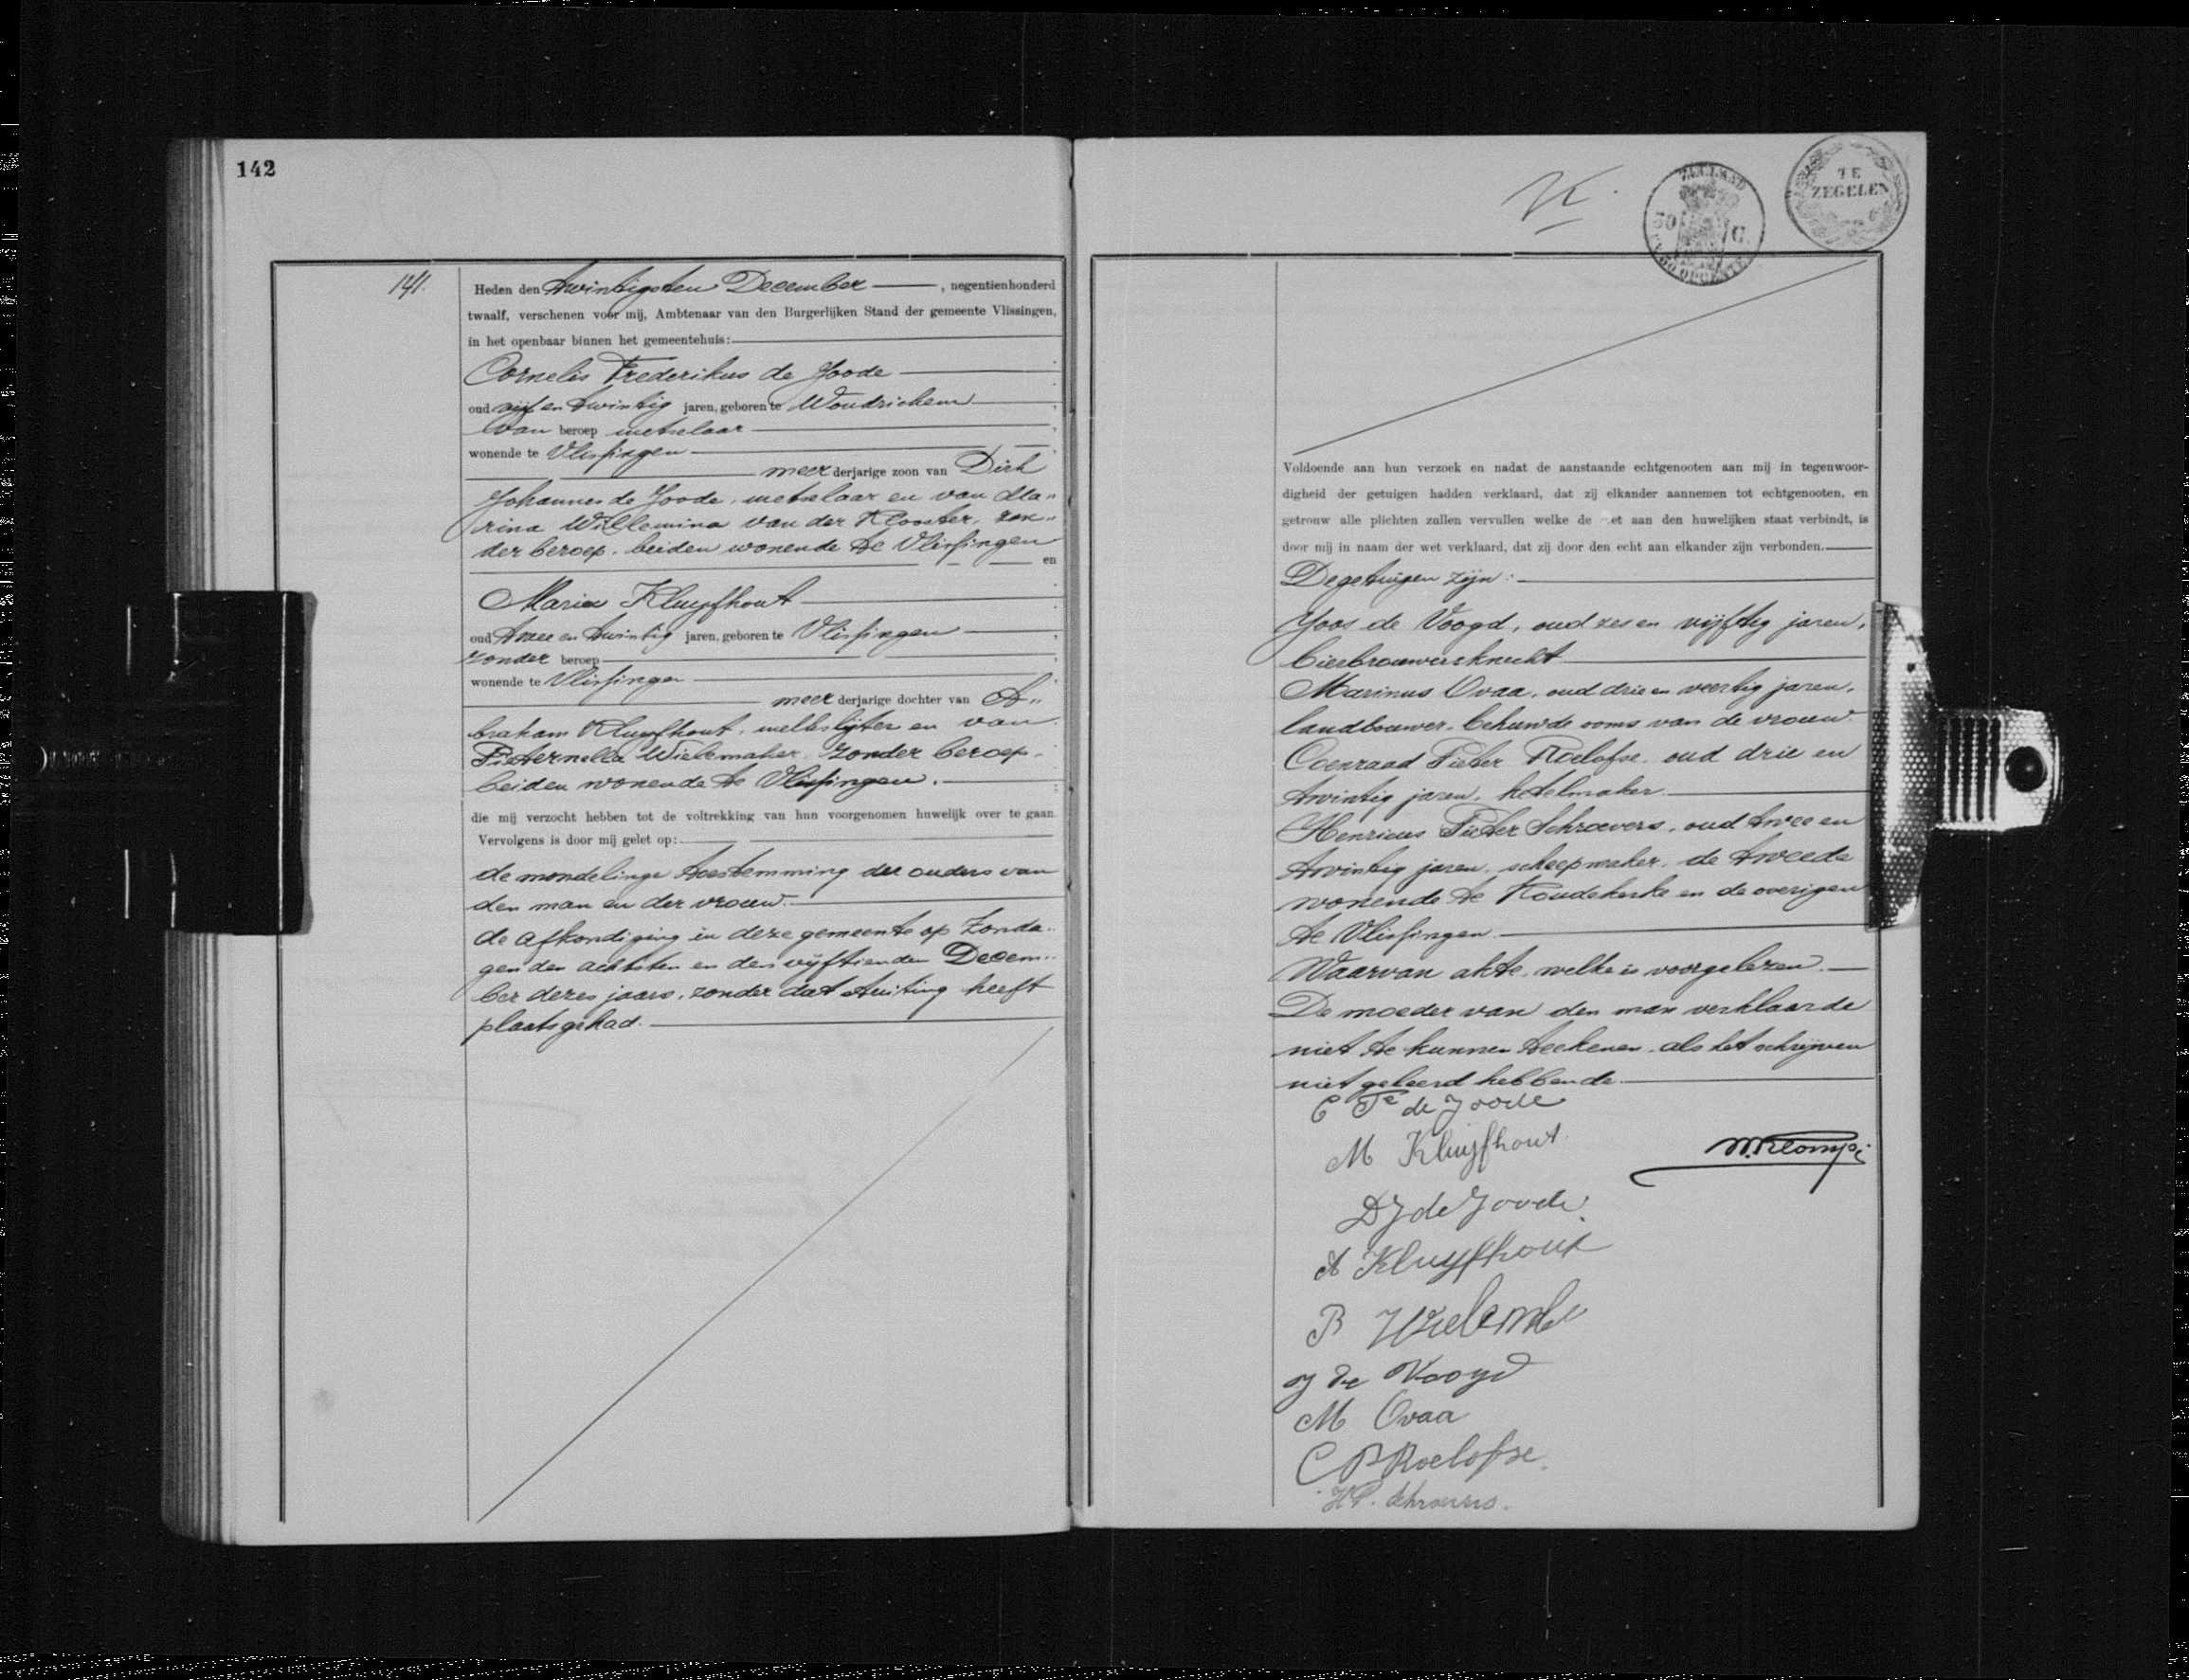 142
141.
Heden den twintigsten December, negentienhonderd
twaalf, verschenen voor mij, Ambtenaar van den Burgerlijken Stand der gemeente Vlissingen,
in het openbaar binnen het gemeentehuis:
Cornelis Frederikus de Joode
oud vijf en twintig jaren, geboren te Woudrichem
van beroep metselaar
wonende te Vlissingen
meerderjarige zoon van Dirk
Johannes de Joode, metselaar en van Ma„
rina Willemina van der Klooster, zon„
der beroep, beiden wonende te Vlissingen
en
Maria Kluyfhout
oud twee en twintig jaren, geboren te Vlissingen
zonder beroep
wonende te Vlissingen
meerderjarige dochter van A„
braham Kluyfhout, melkslijter en van
Pieternella Wielemaker, zonder beroep,
beiden wonende te Vlissingen.
die mij verzocht hebben tot de voltrekking van hun voorgenomen huwelijk over te gaan.
Vervolgens is door mij gelet op:
de mondelinge toestemming der ouders van
den man en der vrouw.
de afkondiging in deze gemeente op Zonda„
gen den achtsten en den vijftienden Decem„
ber dezes jaars, zonder dat stuiting heeft
plaatsgehad.
ZEELAND
50 C.
38 OPCENTEN
TE
ZEGELEN
Voldoende aan hun verzoek en nadat de aanstaande echtgenooten aan mij in tegenwoor-
digheid der getuigen hadden verklaard, dat zij elkander aannemen tot echtgenooten, en
getrouw alle plichten zullen vervullen welke de et aan den huwelijken staat verbindt, is
door mij in naam der wet verklaard, dat zij door den echt aan elkander zijn verbonden.
De getuigen zijn:
Joos de Voogd, oud zes en vijftig jaren,
bierbrouwersknecht
Marinus Ovaa, oud drie en veertig jaren,
landbouwer, behuwde ooms van de vrouw.
Coenraad Pieter Roelofse, oud drie en
twintig jaren, ketelmaker
Henricus Pieter Schroevers, oud twee en
twintig jaren, scheepmaker, de tweede
wonende te Koudekerke en de overigen
te Vlissingen
Waarvan akte, welke is voorgelezen.
De moeder van den man verklaarde
niet te kunnen teekenen, als het schrijven
niet geleerd hebbende.
C Fe de Joode
M Kluijfhout
W. Klomp
D J de Joode
A Kluyfhout
P
J de Voogd
M Ovaa
C P Roelofse
H P. Schroevers.